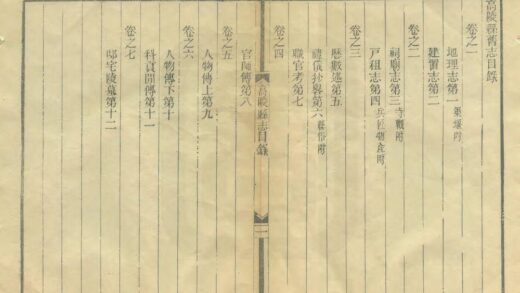 高陵縣舊志目錄
卷之一
地理志第一 渠堰附
建置志第二
卷之二
祠廟志第三 寺觀附
戸租志第四
卷之三
曆數述第五
禮儀抄畧第六
卷之四
職官考第七
高陵縣志目錄
一
官師傳第八
卷之五
人物傳上第九
卷之六
人物傳下第十
科貢閒傳第十一
卷之七
邸宅陵墓第十二